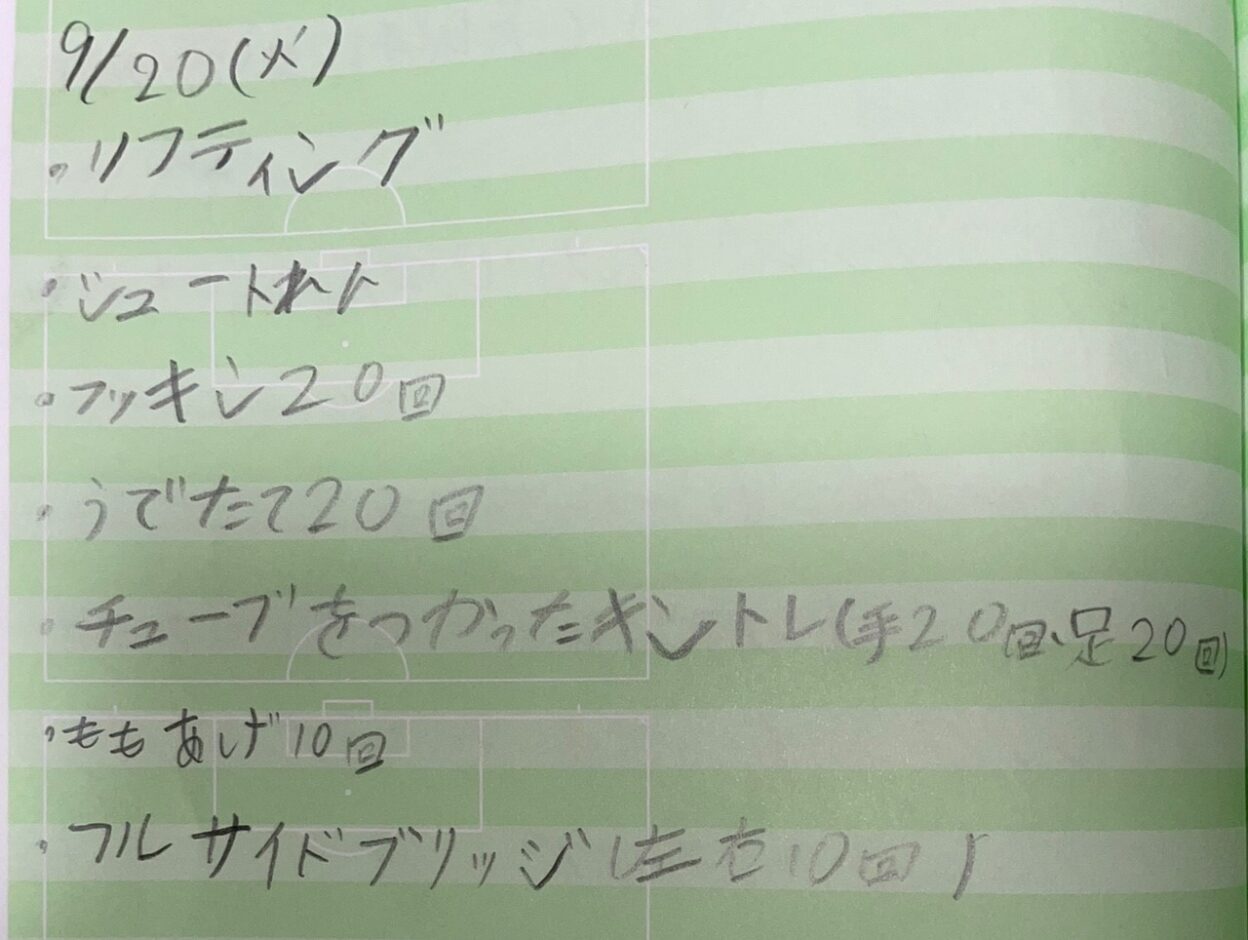 9/20(火)
・リフティング
・シュートれん
・フッキン20回
・うでたて20回
・チューブをつかったキントレ(手20回、足20回)
・ももあげ10回
・フルサイドブリッジ(左右10回)